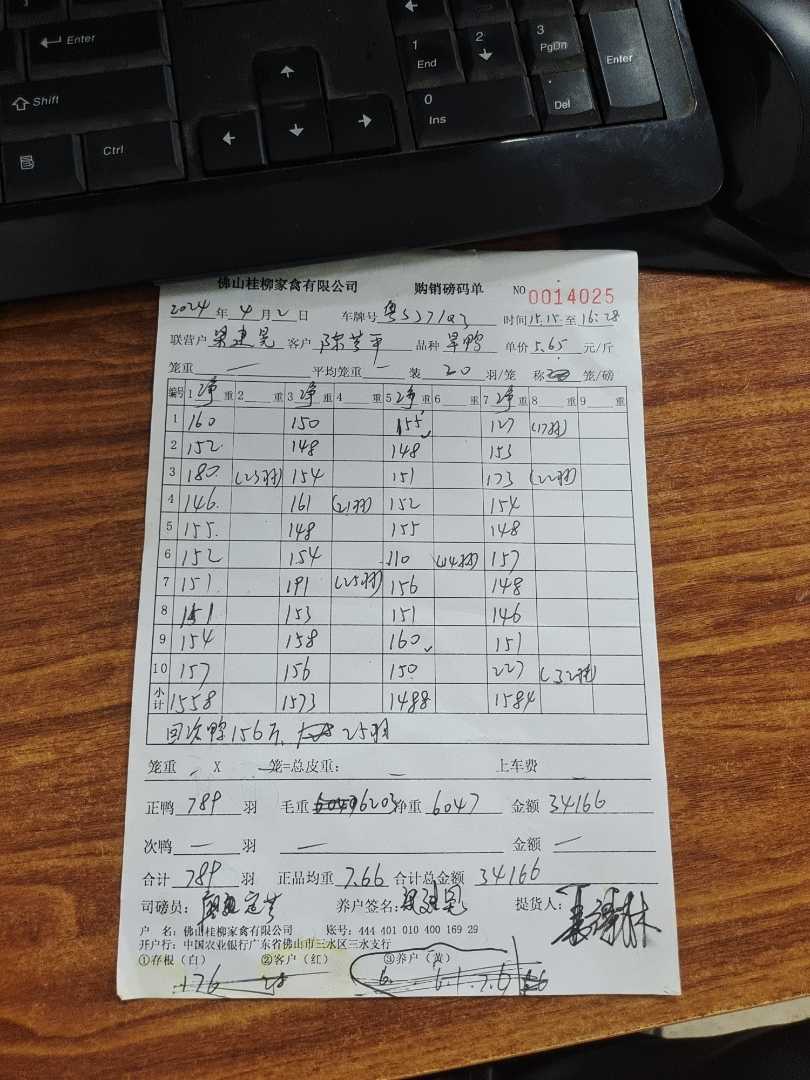 Enter
Shift
Ctrl
1 End
2
3 PgDn
Enter
0 Ins
Del
佛山桂柳家禽有限公司 购销磅码单 NO 0014025
2024 年 4 月 2 日 车牌号 时间 15.15 至 16:28
联营户 梁建昆 客户 品种 旱鸭 单价 5.65 元/斤
笼重 — 平均笼重 — 装 20 羽/笼 称 笼/磅
编号 1 净 重 2 重 3 净 重 4 重 5 净 重 6 重 7 净 重 8 重 9 重
1 160 150 155 127 (17羽)
2 152 148 148 153
3 180 (23羽) 154 151 173 (22羽)
4 146 161 (21羽) 152 154
5 155 148 155 148
6 152 154 110 (14羽) 157
7 151 191 (25羽) 156 148
8 151 153 151 146
9 154 158 160 151
10 157 156 150 227 (32羽)
小计 1558 1573 1488 1584
回次鸭156斤, 25羽
笼重 - X - 笼=总皮重: - 上车费 -
正鸭 789 羽 毛重 6203 净重 6047 金额 34166
次鸭 — 羽 — 金额 —
合计 789 羽 正品均重 7.66 合计总金额 34166
司磅员: 养户签名: 梁建昆 提货人:
户 名: 佛山桂柳家禽有限公司 账号: 444 401 010 400 169 29
开户行: 中国农业银行广东省佛山市三水区三水支行
①存根(白) ②客户(红) ③养户(黄)